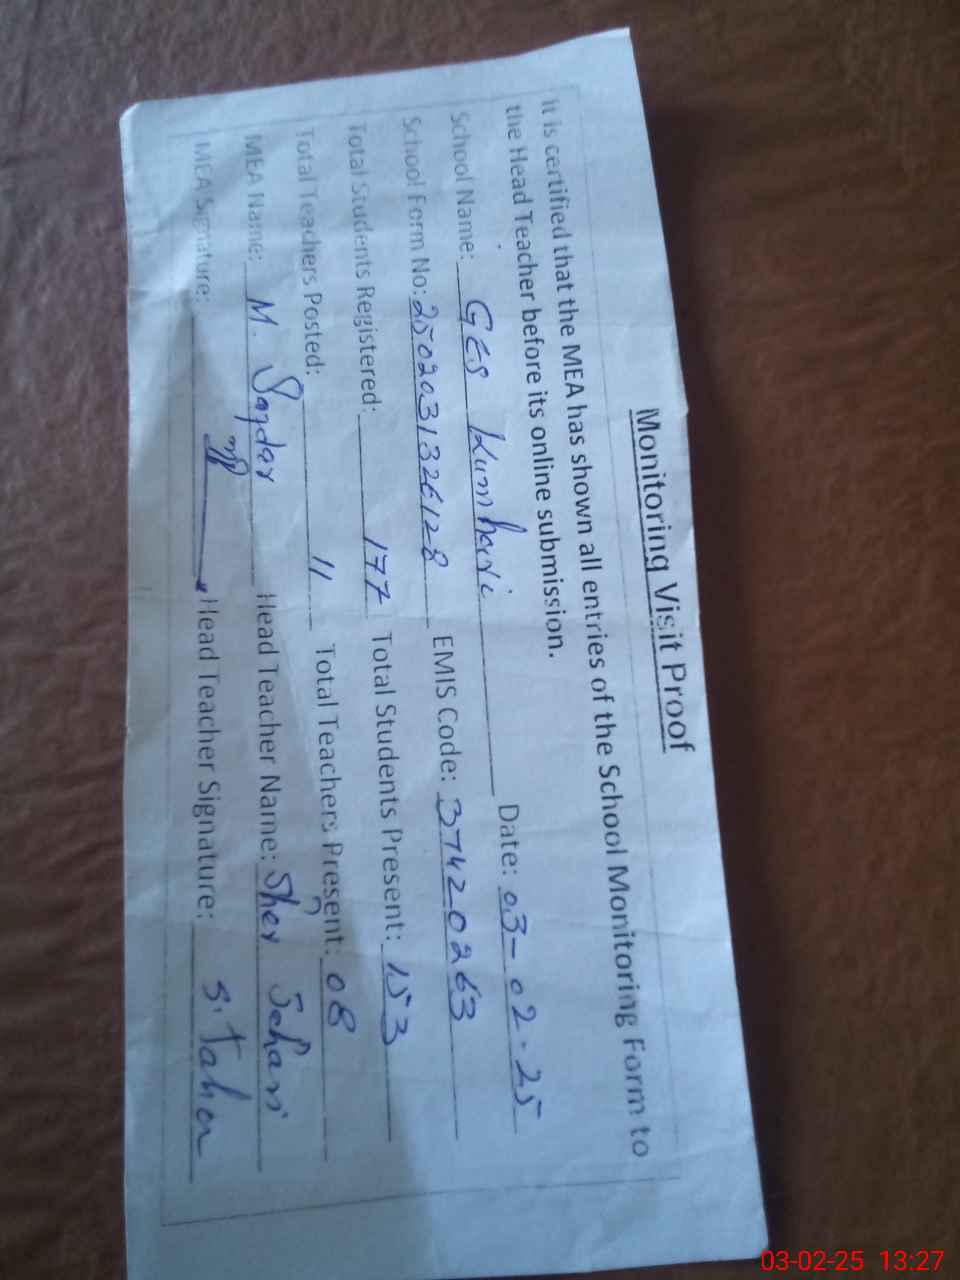 Monitoring Visit Proof
It is certified that the MEA has shown all entries of the School Monitoring Form to
the Head Teacher before its online submission.
School Name: GES Kumhari Date: 03-02-25
School Form No: 2502031326128 EMIS Code: 37420263
Total Students Registered: 177 Total Students Present: 153
Total Teachers Posted: 11 Total Teachers Present: 08
MEA Name: M. Head Teacher Name: Sher
MEA Signature: Head Teacher Signature: S. Taher
03-02-25 13:27